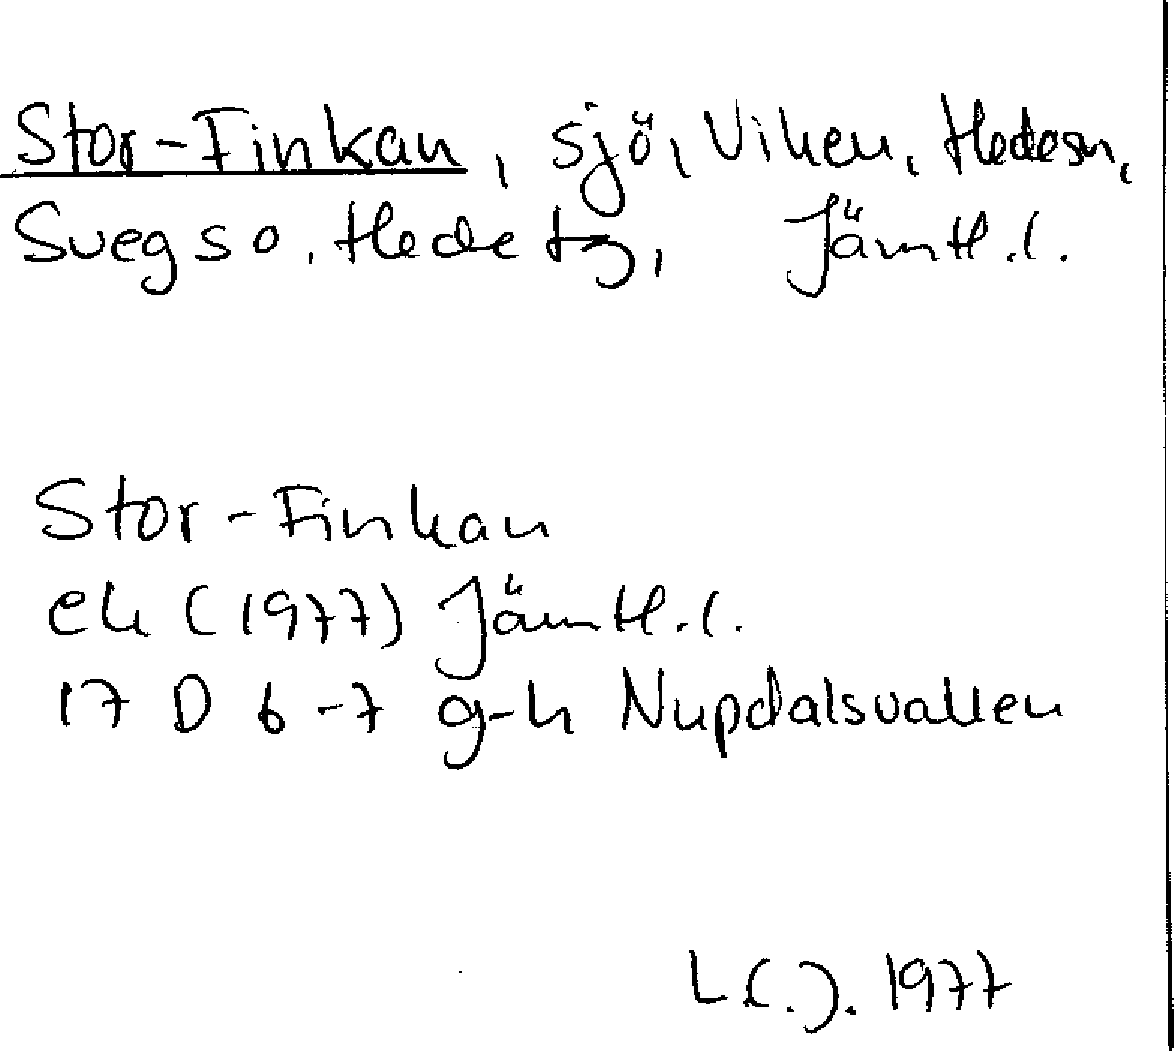 Stor-Finkan, sjö, Viken, Hedesn,
Svegs o. Hede tg, Jämtl.l.
Stor-Finkan
ek (1977) Jämtl.l.
17 D 6-7 g-h Nupdalsvallen
1977